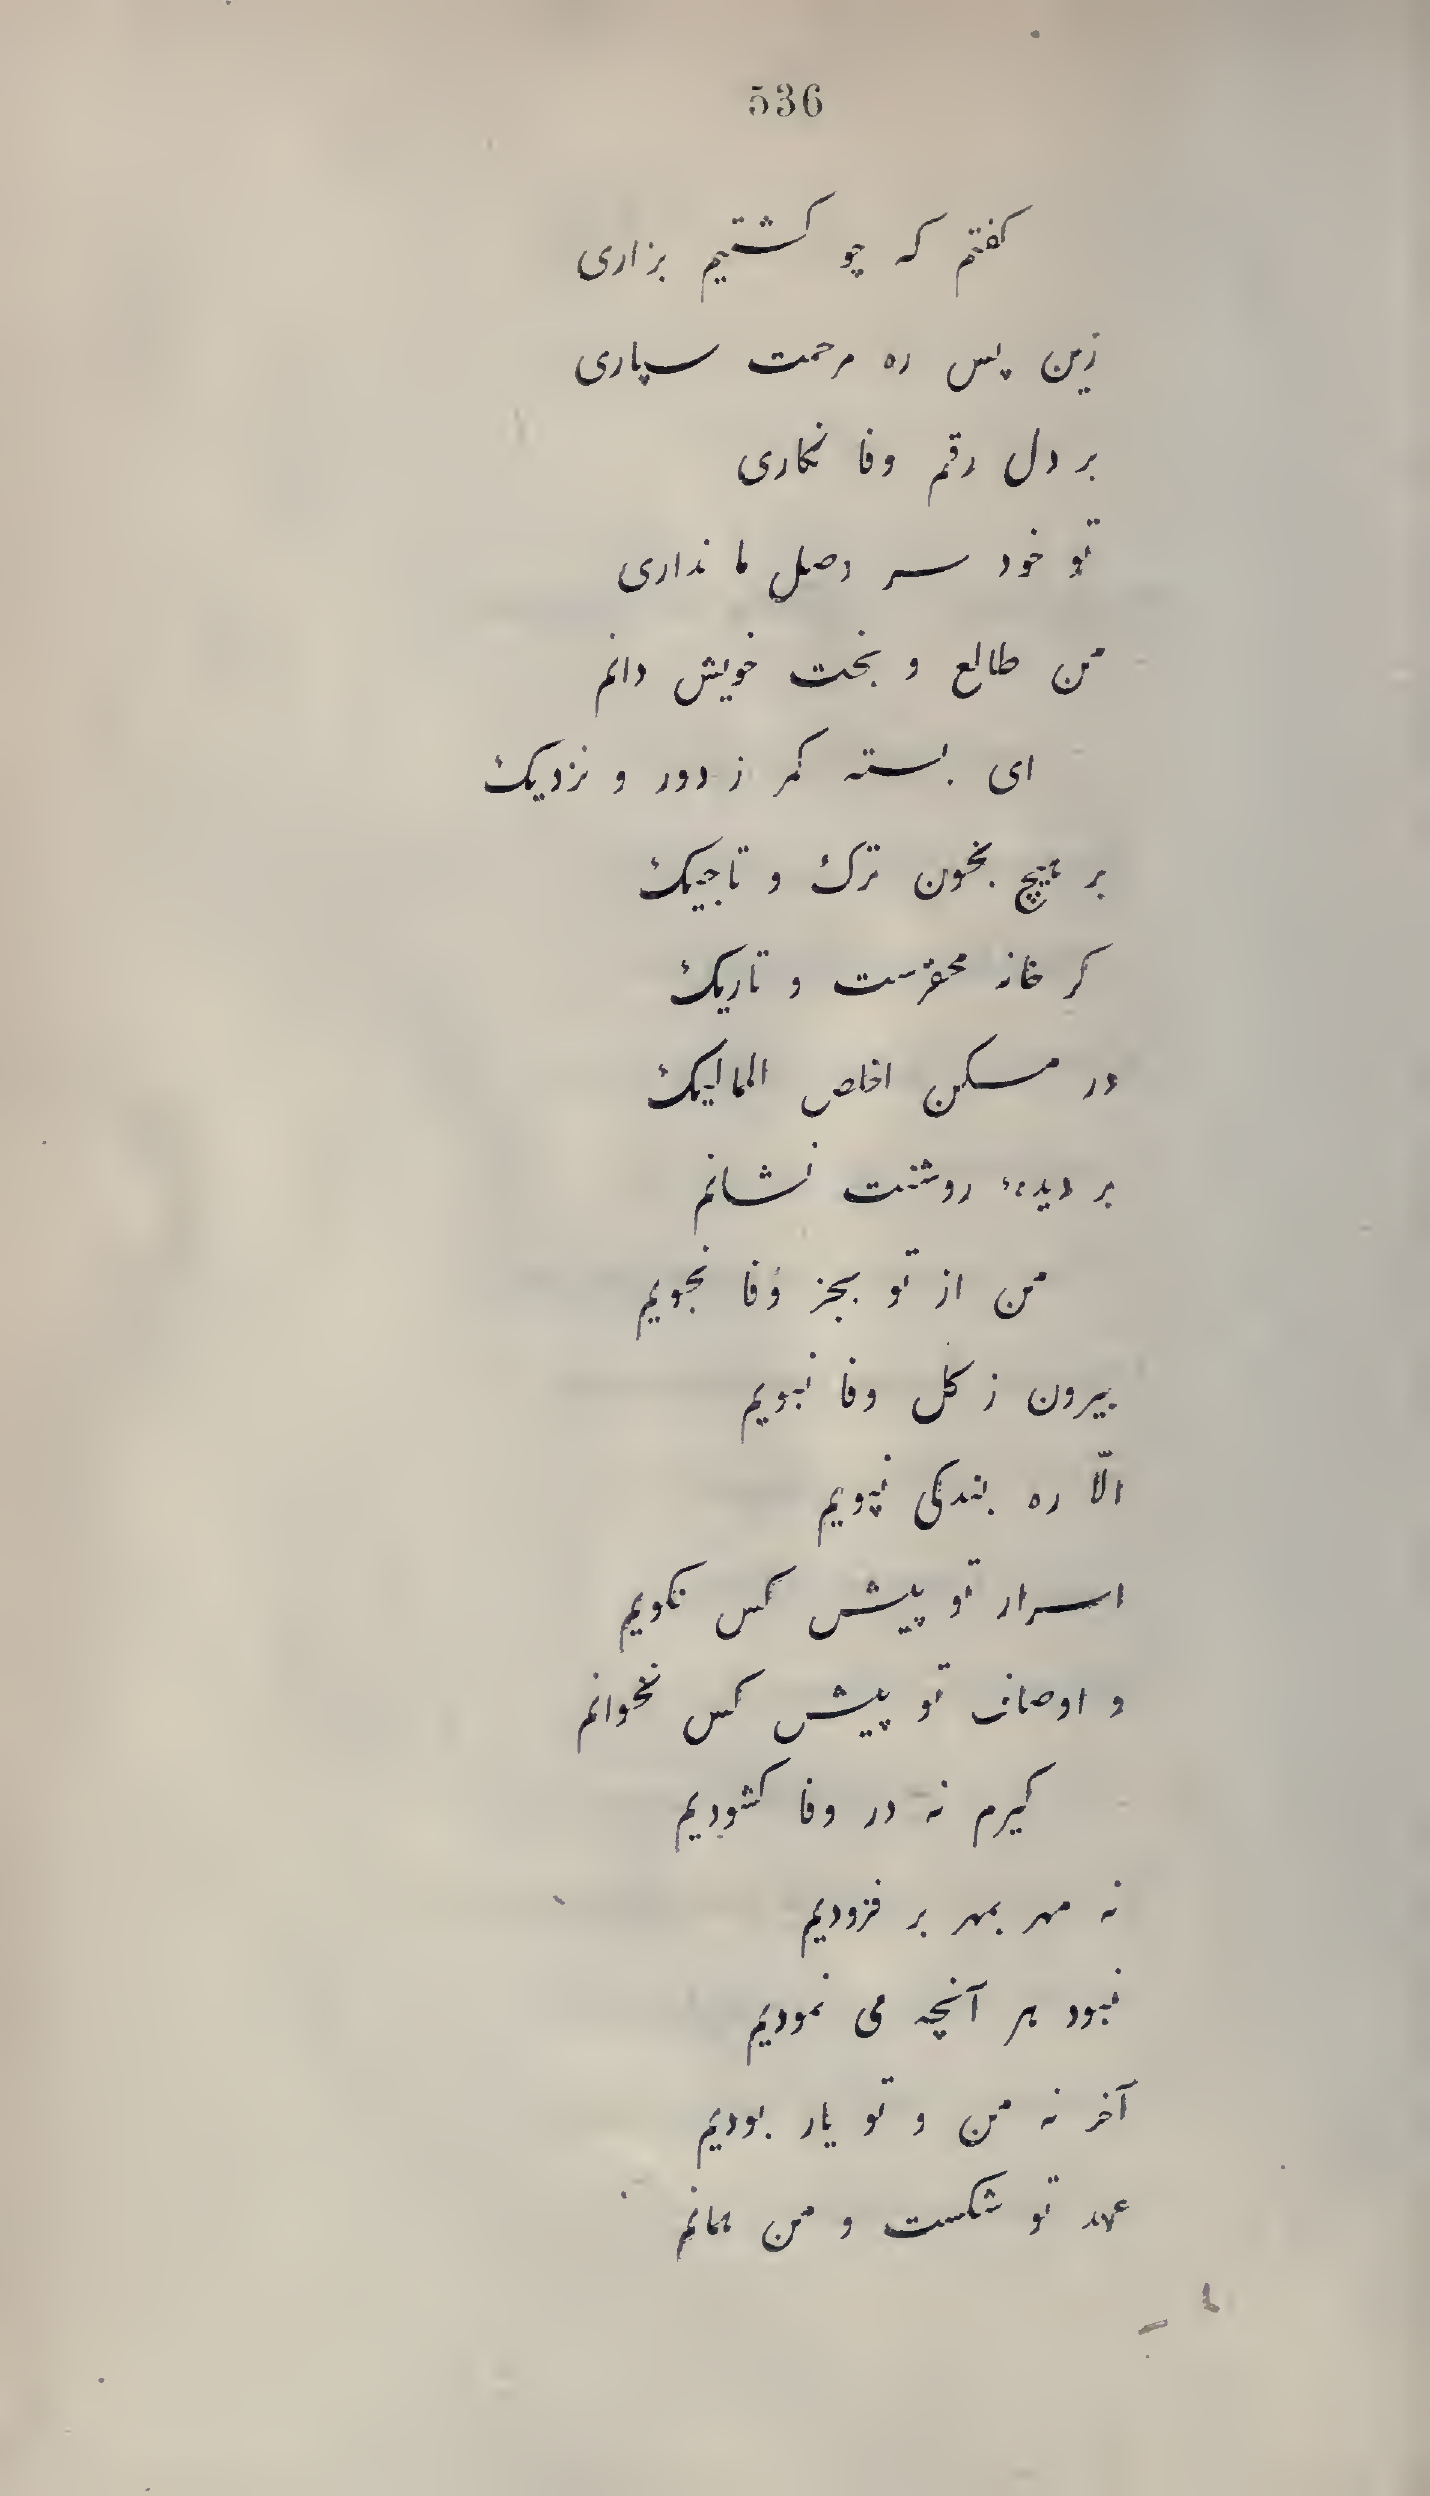 536
کفتم که چو کشتیم بزاری
زین پس ره مرحمت سپاری
بر دل رقم وفا نکاری
تو خود سر وصل ما نداری
من طالع و بخت خویش دانم
ای بسته کمر ز دور و نزدیک
بر هیچ بخون ترک و تاجیک
کر خانه محقرست و تاریک
در مسکن اخلص المالیک
بر دیدهٔ روشنت نشانم
من از تو بجز وفا نجویم
بیرون ز کل وفا نبویم
الّا ره بندکی نپویم
اسرار تو پیش کس نکویم
و اوصاف تو پیش کس نخوانم
کیرم نه در وفا کشودیم
نه مهر بمهر بر فزودیم
نبود هر آنچه می نمودیم
آخر نه من و تو یار بودیم
عهد تو شکست و من همانم